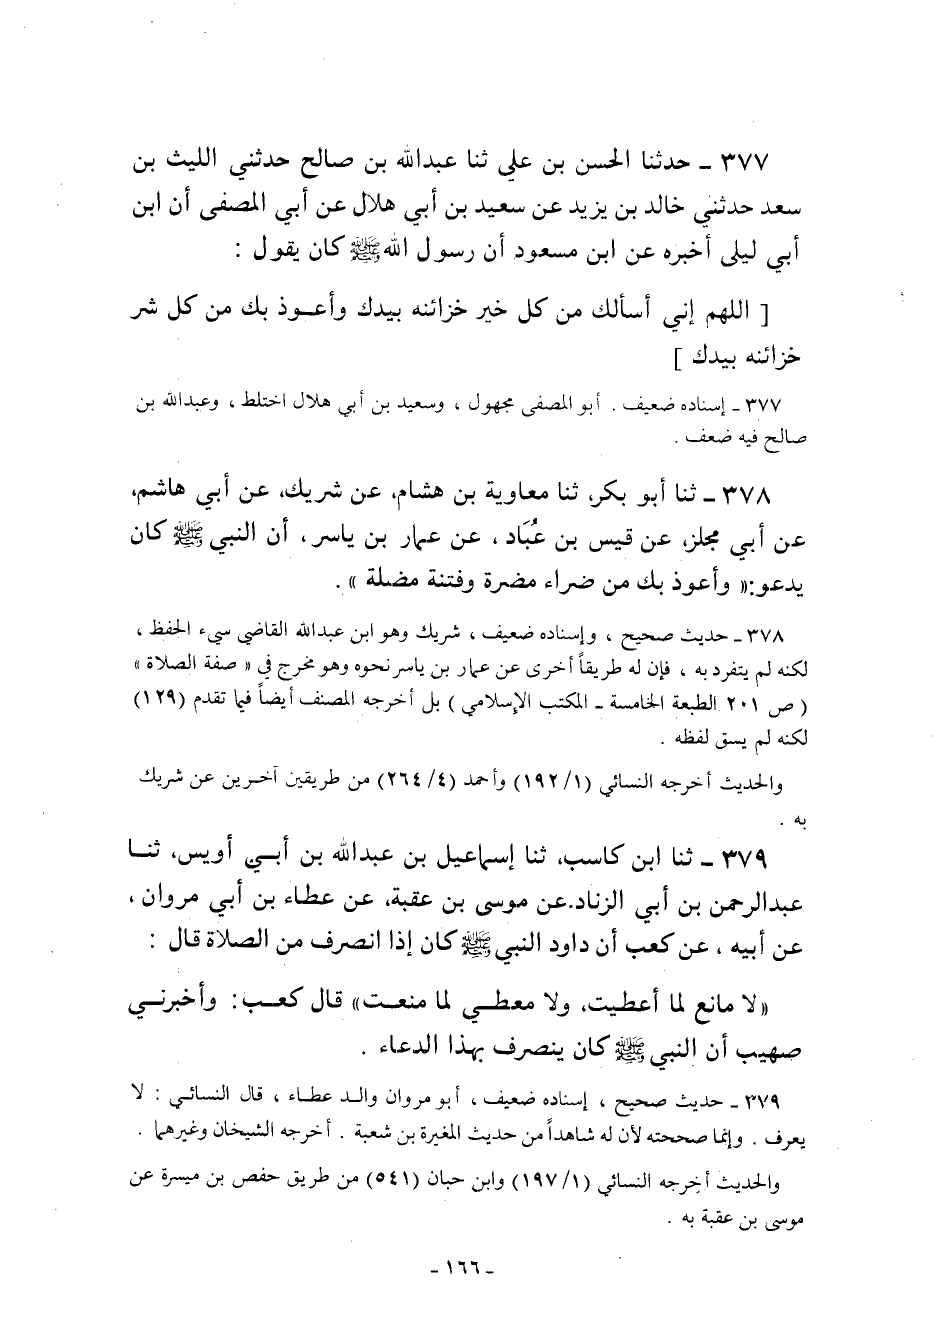 ٣٧٧ ـ حدثنا الحسن بن علي ثنا عبدالله بن صالح حدثني الليث بن
سعد حدثني خالد بن يزيد عن سعيد بن أبي هلال عن أبي المصفى أن ابن
أبي ليلى أخبره عن ابن مسعود أن رسول الله ﷺ كان يقول :
[ اللهم إني أسألك من كل خير خزائنه بيدك وأعوذ بك من كل شر
خزائنه بيدك ]
٣٧٧ ـ إسناده ضعيف . أبو المصفى مجهول ، وسعيد بن أبي هلال اختلط ، وعبدالله بن
صالح فيه ضعف .
٣٧٨ ـ ثنا أبو بكر، ثنا معاوية بن هشام، عن شريك، عن أبي هاشم،
عن أبي مجلز، عن قيس بن عُبَاد ، عن عمار بن ياسر ، أن النبي ﷺ كان
يدعو: « وأعوذ بك من ضراء مضرة وفتنة مضلة » .
٣٧٨ ـ حديث صحيح ، وإسناده ضعيف ، شريك وهو ابن عبدالله القاضي سيء الحفظ ،
لكنه لم يتفرد به ، فإن له طريقاً أخرى عن عمار بن ياسر نحوه وهو مخرج في « صفة الصلاة »
( ص ٢٠١ الطبعة الخامسة ـ المكتب الإسلامي ) بل أخرجه المصنف أيضاً فيما تقدم (١٢٩)
لكنه لم يسق لفظه .
والحديث أخرجه النسائي (١/١٩٢) وأحمد (٤/٢٦٤) من طريقين آخرين عن شريك
به .
٣٧٩ ـ ثنا ابن كاسب، ثنا إسماعيل بن عبدالله بن أبي أويس، ثنا
عبدالرحمن بن أبي الزناد. عن موسى بن عقبة، عن عطاء بن أبي مروان ،
عن أبيه ، عن كعب أن داود النبي ﷺ كان إذا انصرف من الصلاة قال :
«لا مانع لما أعطيت، ولا معطي لما منعت» قال كعب: وأخبرني
صهيب أن النبي ﷺ كان ينصرف بهذا الدعاء .
٣٧٩ ـ حديث صحيح ، إسناده ضعيف ، أبو مروان والد عطاء ، قال النسائي : لا
يعرف . وإنما صححته لأن له شاهداً من حديث المغيرة بن شعبة . أخرجه الشيخان وغيرهما .
والحديث أخرجه النسائي (١/١٩٧) وابن حبان (٥٤١) من طريق حفص بن ميسرة عن
موسى بن عقبة به .
ـ ١٦٦ ـ